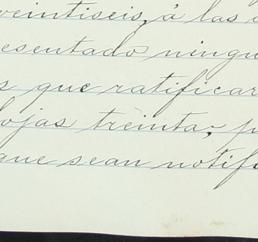 veintiseis, á las
esentado ningu
s que ratificar
ojas treinta, p
que sean notifi